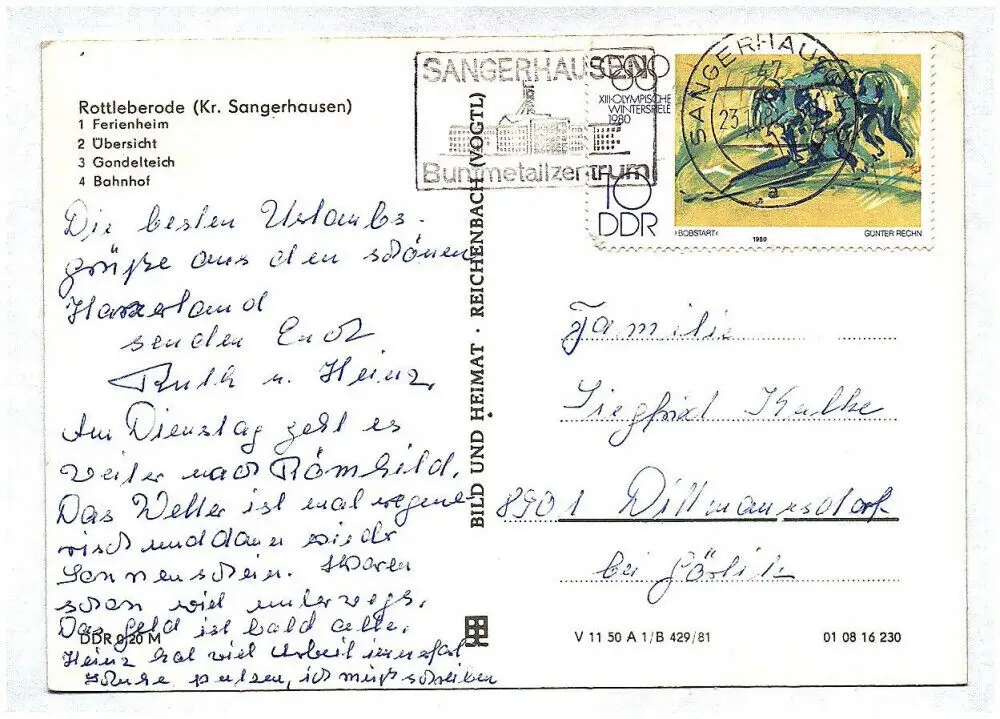 Rottleberode (Kr. Sangerhausen)
1 Ferienheim
2 Übersicht
3 Gondelteich
4 Bahnhof
Die besten Urlaubs-
grüße aus den schönen
Harzerland
senden Euch
Ruth u. Heinz.
Am Dienstag geht es
weiter nach Römhild.
Das Wetter ist mal regne-
risch und dann wieder
Sonnenschein. Waren
schon viel unterwegs.
Das Geld ist bald alle.
Heinz hat viel Arbeit
putzen, ich muß schreiben
DDR 0,20 M
BILD UND HEIMAT · REICHENBACH (VOGTL)
SANGERHAUSEN
Buntmetallzentrum
XIII·OLYMPISCHE
WINTERSPIELE
1980
10
DDR
›BOBSTART‹
1980
GÜNTER RECHN
SANGERHAUSEN
47
23.
a
Familie
Siegfried Kalke
8901 Dittmannsdorf
bei Görlitz
V 11 50 A 1/B 429/81
01 08 16 230